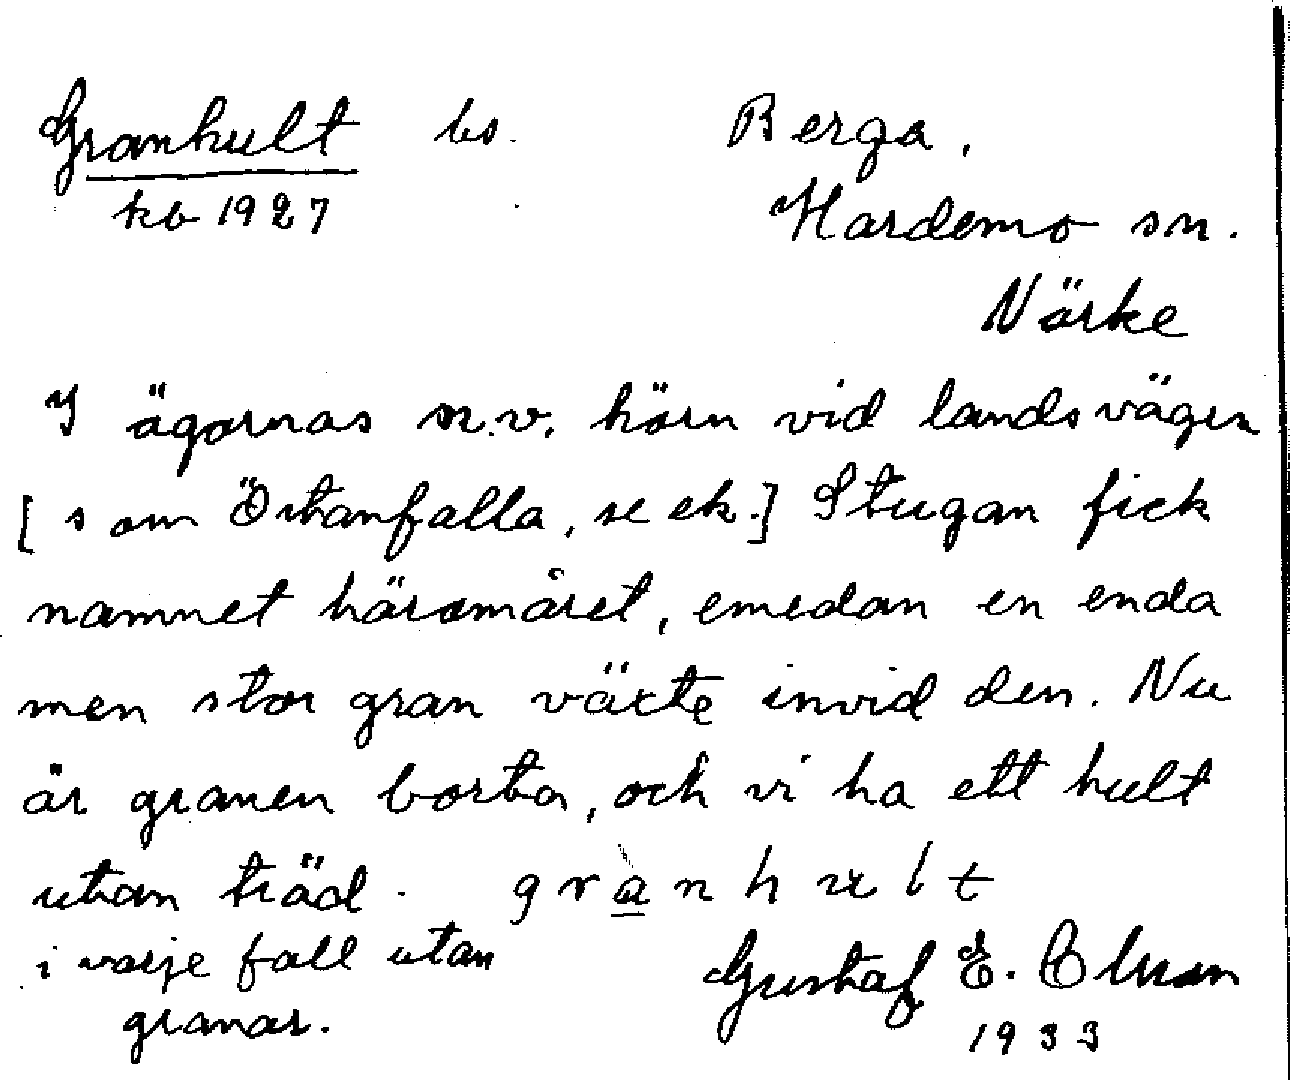 Granhult bs. Berga,
kb 1927 Hardemo sn.
Närke
I ägornas n.v. hörn vid landsvägen
[som Östanfalla, se ek.] Stugan fick
namnet häromåret, emedan en enda
men stor gran växte invid den. Nu
är granen borta, och vi ha ett hult
utan träd. grànhult
i varje fall utan
granar.
Gustaf E. Olsson
1933